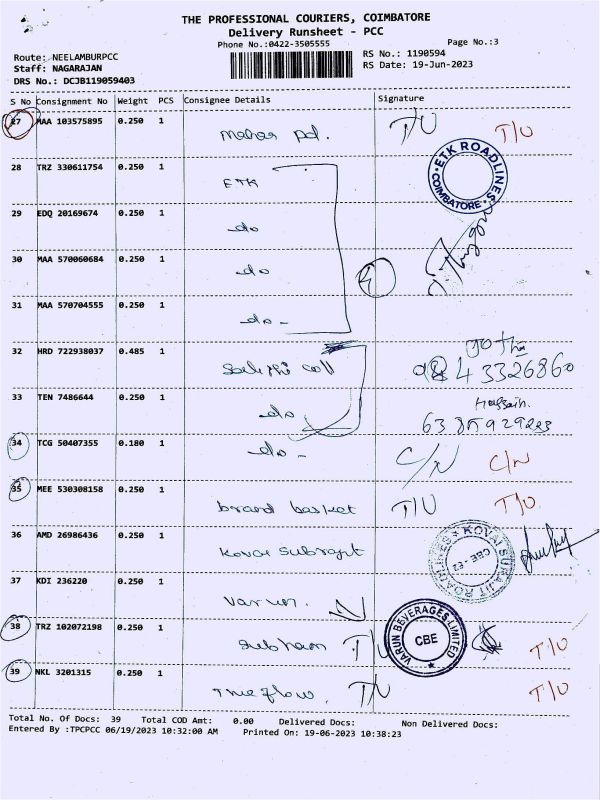 THE PROFESSIONAL COURIERS, COIMBATORE
Delivery Runsheet - PCC
Phone No.:0422-3505555 Page No.:3
Route: NEELAMBURPCC RS No.: 1190594
Staff: NAGARAJAN RS Date: 19-Jun-2023
DRS No.: DCJB119059403
S No Consignment No Weight PCS Consignee Details Signature
27 MAA 103575895 0.250 1 T/U T/U
28 TRZ 330611754 0.250 1 ETK
ETK ROADLINES
COIMBATORE
29 EDQ 20169674 0.250 1 do
30 MAA 570060684 0.250 1 do
31 MAA 570704555 0.250 1 do -
32 HRD 722938037 0.485 1
33 TEN 7486644 0.250 1 do Hussain.
34 TCG 50407355 0.180 1 do - C/N C/N
35 MEE 530308158 0.250 1 brand basket T/U T/U
36 AMD 26986436 0.250 1 Kovai
KOVAI SURAJIT ROADLINES
CBE - 62
37 KDI 236220 0.250 1 Varun.
VARUN BEVERAGES LIMITED
CBE
38 TRZ 102072198 0.250 1 T/U T/U
39 NKL 3201315 0.250 1 Trueflow. T/U T/U
Total No. Of Docs: 39 Total COD Amt: 0.00 Delivered Docs: Non Delivered Docs:
Entered By :TPCPCC 06/19/2023 10:32:00 AM Printed On: 19-06-2023 10:38:23